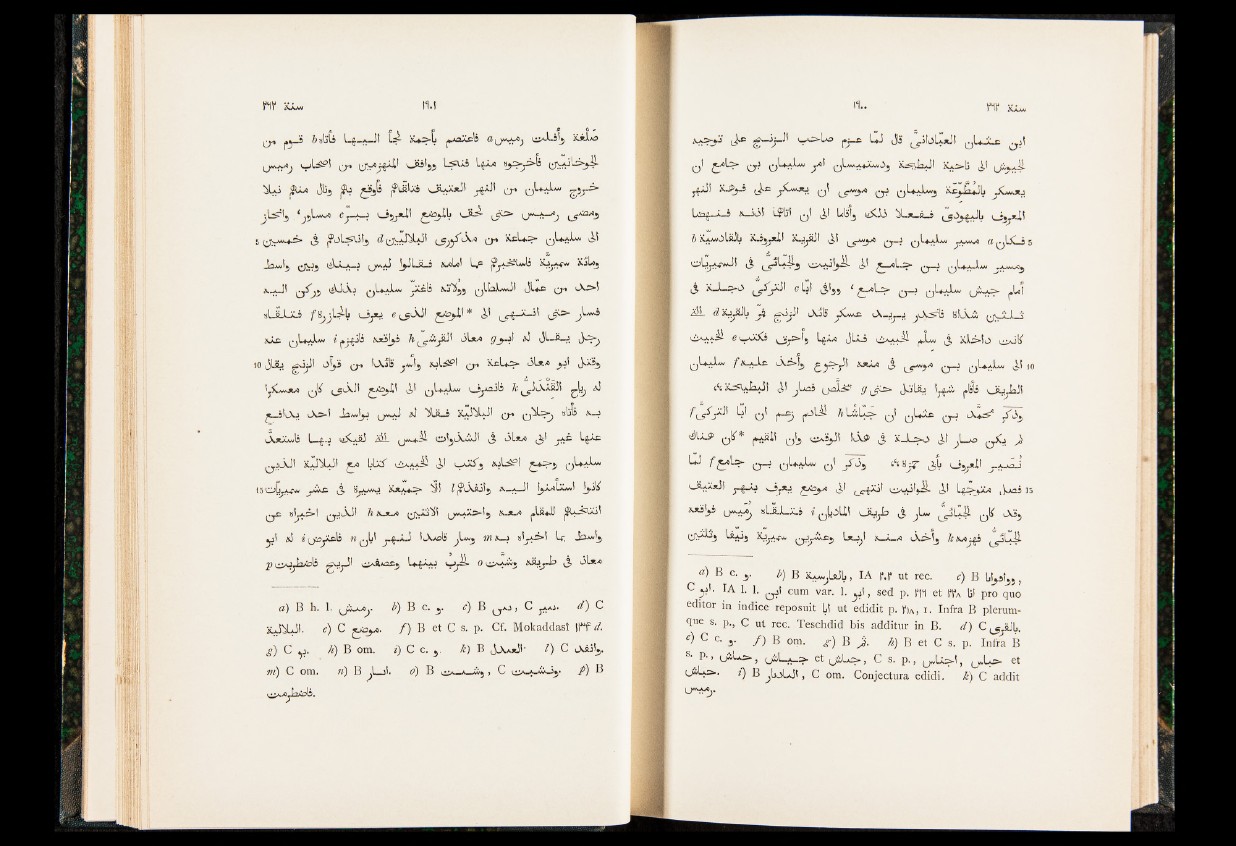 سنة ٢٦٢ ١٩٠٠
ابن عثمان العبّادانىّ قال لمّا عزم صاحب الزنج على توجيه
الجيوش الى ناحية البطيحة ودستميسان امر سليمان بن جامع ان
يعسكر بالمُطَّوِّعة وسليمان بن موسى ان يعسكر على فوهة النهر
المعروف باليهودىّ ففعلا ذلك واقاما الى ان اتاهما اذنه فنهضا
5 فكان a مسير سليمان بن موسى الى القرية المعروفة بالقادسيّة b
ومسير سليمان بن جامع الى الحوانيت والجُبّائىّ فى السميريّات
أمام جيش سليمان بن جامع، ووافى ابّا c التركىّ دجلة فى
ثلثين شذاة فانحدر يريد عسكر قائد الزنج فمرّ بالقرية d التى
كانت داخلة فى سلم الخبيث فنال منها وأحرق فكتب e الخبيث
10 الى سليمان بن موسى فى منعه الرجوع وأخذ عليه f سليمان
الطريف فأقام شهرا يقاتل حتى g تخلّص فصار الى البطيحة،
وذكر محمّد بن عثمان ان جَبّاشا h الخادم زعم ان ابّا التركىّ f
لم يكن صار الى دجلة فى هذا الوقت وان المقيم *كان هناك
نُصَير المعروف بأبى حمزة، وذكر ان سليمان بن جامع f لمّا
15 فصل متوجّها الى الحوانيت انتهى الى موضع يعرف بنهر العتيق
وقد كان الجُبّائىّ سار فى طريق الماديان i فتلقّاه رُمَيس فواقعه
الجُبّائىّ فهزمه k وأخذ منه اربعا وعشرين سميريّة ونيّفا وثلثين
a) B c. و. b) B بالقارسية, IA ٢٠٢ ut rec. c) B ووافوابا,
C ابو. IA l. l. ابن cum var. l. ابو, sed p. ٢٢٦ et ٢٢٨ انا pro quo
editor in indice reposuit ابا ut edidit p. ٢٠٨, 1. Infra B plerum-
que s. p., C ut rec. Teschdid bis additur in B. d) C بالقرى.
e) C c. و. f) B om. g) B ثم. h) B et C s. p. Infra B
s. p., حناش, جباش et جماش, C s. p., et
i) B الماديار, C om. Conjectura edidi. k) C addit
رميس.
١٩٠١ سنة ٢٦٢
صَلْغة وأفلت رميس a فاعتصم بأجمة لجأ اليها فأتاه b قوم من
الجوخانيّين فأخرجوه منها فنجا ووافق المنهزمين من اصحاب رميس
خروج سليمان من النهر العتيق فتلقّاهم فأوقع بهم ونال منهم نيلا
ومضى رميس حتى لحق بالموضع المعروف ببرّ c مساور، وانحاز
5 الى سليمان جماعة من مذكورى البلاليّين d وانجادهم فى خمسين
ومائة سميريّة فاستخبرهم عما امامه فقالوا ليس بينك وبين واسط
احد من عمّال السلطان وولاته فاغترّ سليمان بذلك وركن اليه
فسار حتى انتهى الى *الموضع الذى e يعرف بالجازرة f فتلقّاه
رجل يقال له ابو g معاذ القرشىّ h فواقعه فانهزم i سليمان عنه
10 وقتل ابو معاذ جماعة من اصحابه وأسر قائدا من قوّاد الزنج يقال
له رياح القَنْدَلىّ k فانصرف سليمان الى الموضع الذى كان معسكرا
به فأتاه رجلان من البلاليّة فقلا له ليس بواسط احد يدافع
عنها غير ابى معاذ فى الشذوات الخمس التى لقيك بها فاستعدّ
سليمان وجمع اصحابه وكتب الى الخبيث كتابا مع البلاليّة الذين
15 كانوا استأمنوا اليه وانفذهم l الّا جميّعة يسيرة فى عشر سميريّات
انتخبهم للمقام معه واحتبس الاثنين معه h الذين اخبراه عن
واسط بما اخبراه به m وسار قاصدا لنهر ابان n فاعترض i له ابو
معاذ فى طريقه وشبّت o الحرب بينهما وعصفت الريح فاضطربت p
a) B h. l. رميش. b) B c. و. c) B , C . d) C
البلالية. e) C موضع. f) B et C s. p. Cf. Mokaddasi ١٣٤ d.
g) C بو. h) B om. i) C c. و. k) B . l) C وانفذ.
m) C om. n) B انسار. o) B وشست, C ونشبت. p) B
فاضطرمت.